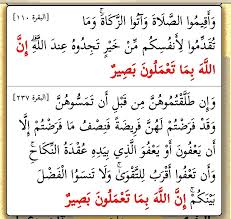 وَأَقِيمُوا الصَّلَاةَ وَآتُوا الزَّكَاةَ ۚ وَمَا [البقرة ١١٠]
تُقَدِّمُوا لِأَنفُسِكُم مِّنْ خَيْرٍ تَجِدُوهُ عِندَ اللَّهِ ۗ إِنَّ
اللَّهَ بِمَا تَعْمَلُونَ بَصِيرٌ
وَإِن طَلَّقْتُمُوهُنَّ مِن قَبْلِ أَن تَمَسُّوهُنَّ [البقرة ٢٣٧]
وَقَدْ فَرَضْتُمْ لَهُنَّ فَرِيضَةً فَنِصْفُ مَا فَرَضْتُمْ إِلَّا
أَن يَعْفُونَ أَوْ يَعْفُوَ الَّذِي بِيَدِهِ عُقْدَةُ النِّكَاحِ ۚ
وَأَن تَعْفُوا أَقْرَبُ لِلتَّقْوَىٰ ۚ وَلَا تَنسَوُا الْفَضْلَ
بَيْنَكُمْ ۚ إِنَّ اللَّهَ بِمَا تَعْمَلُونَ بَصِيرٌ